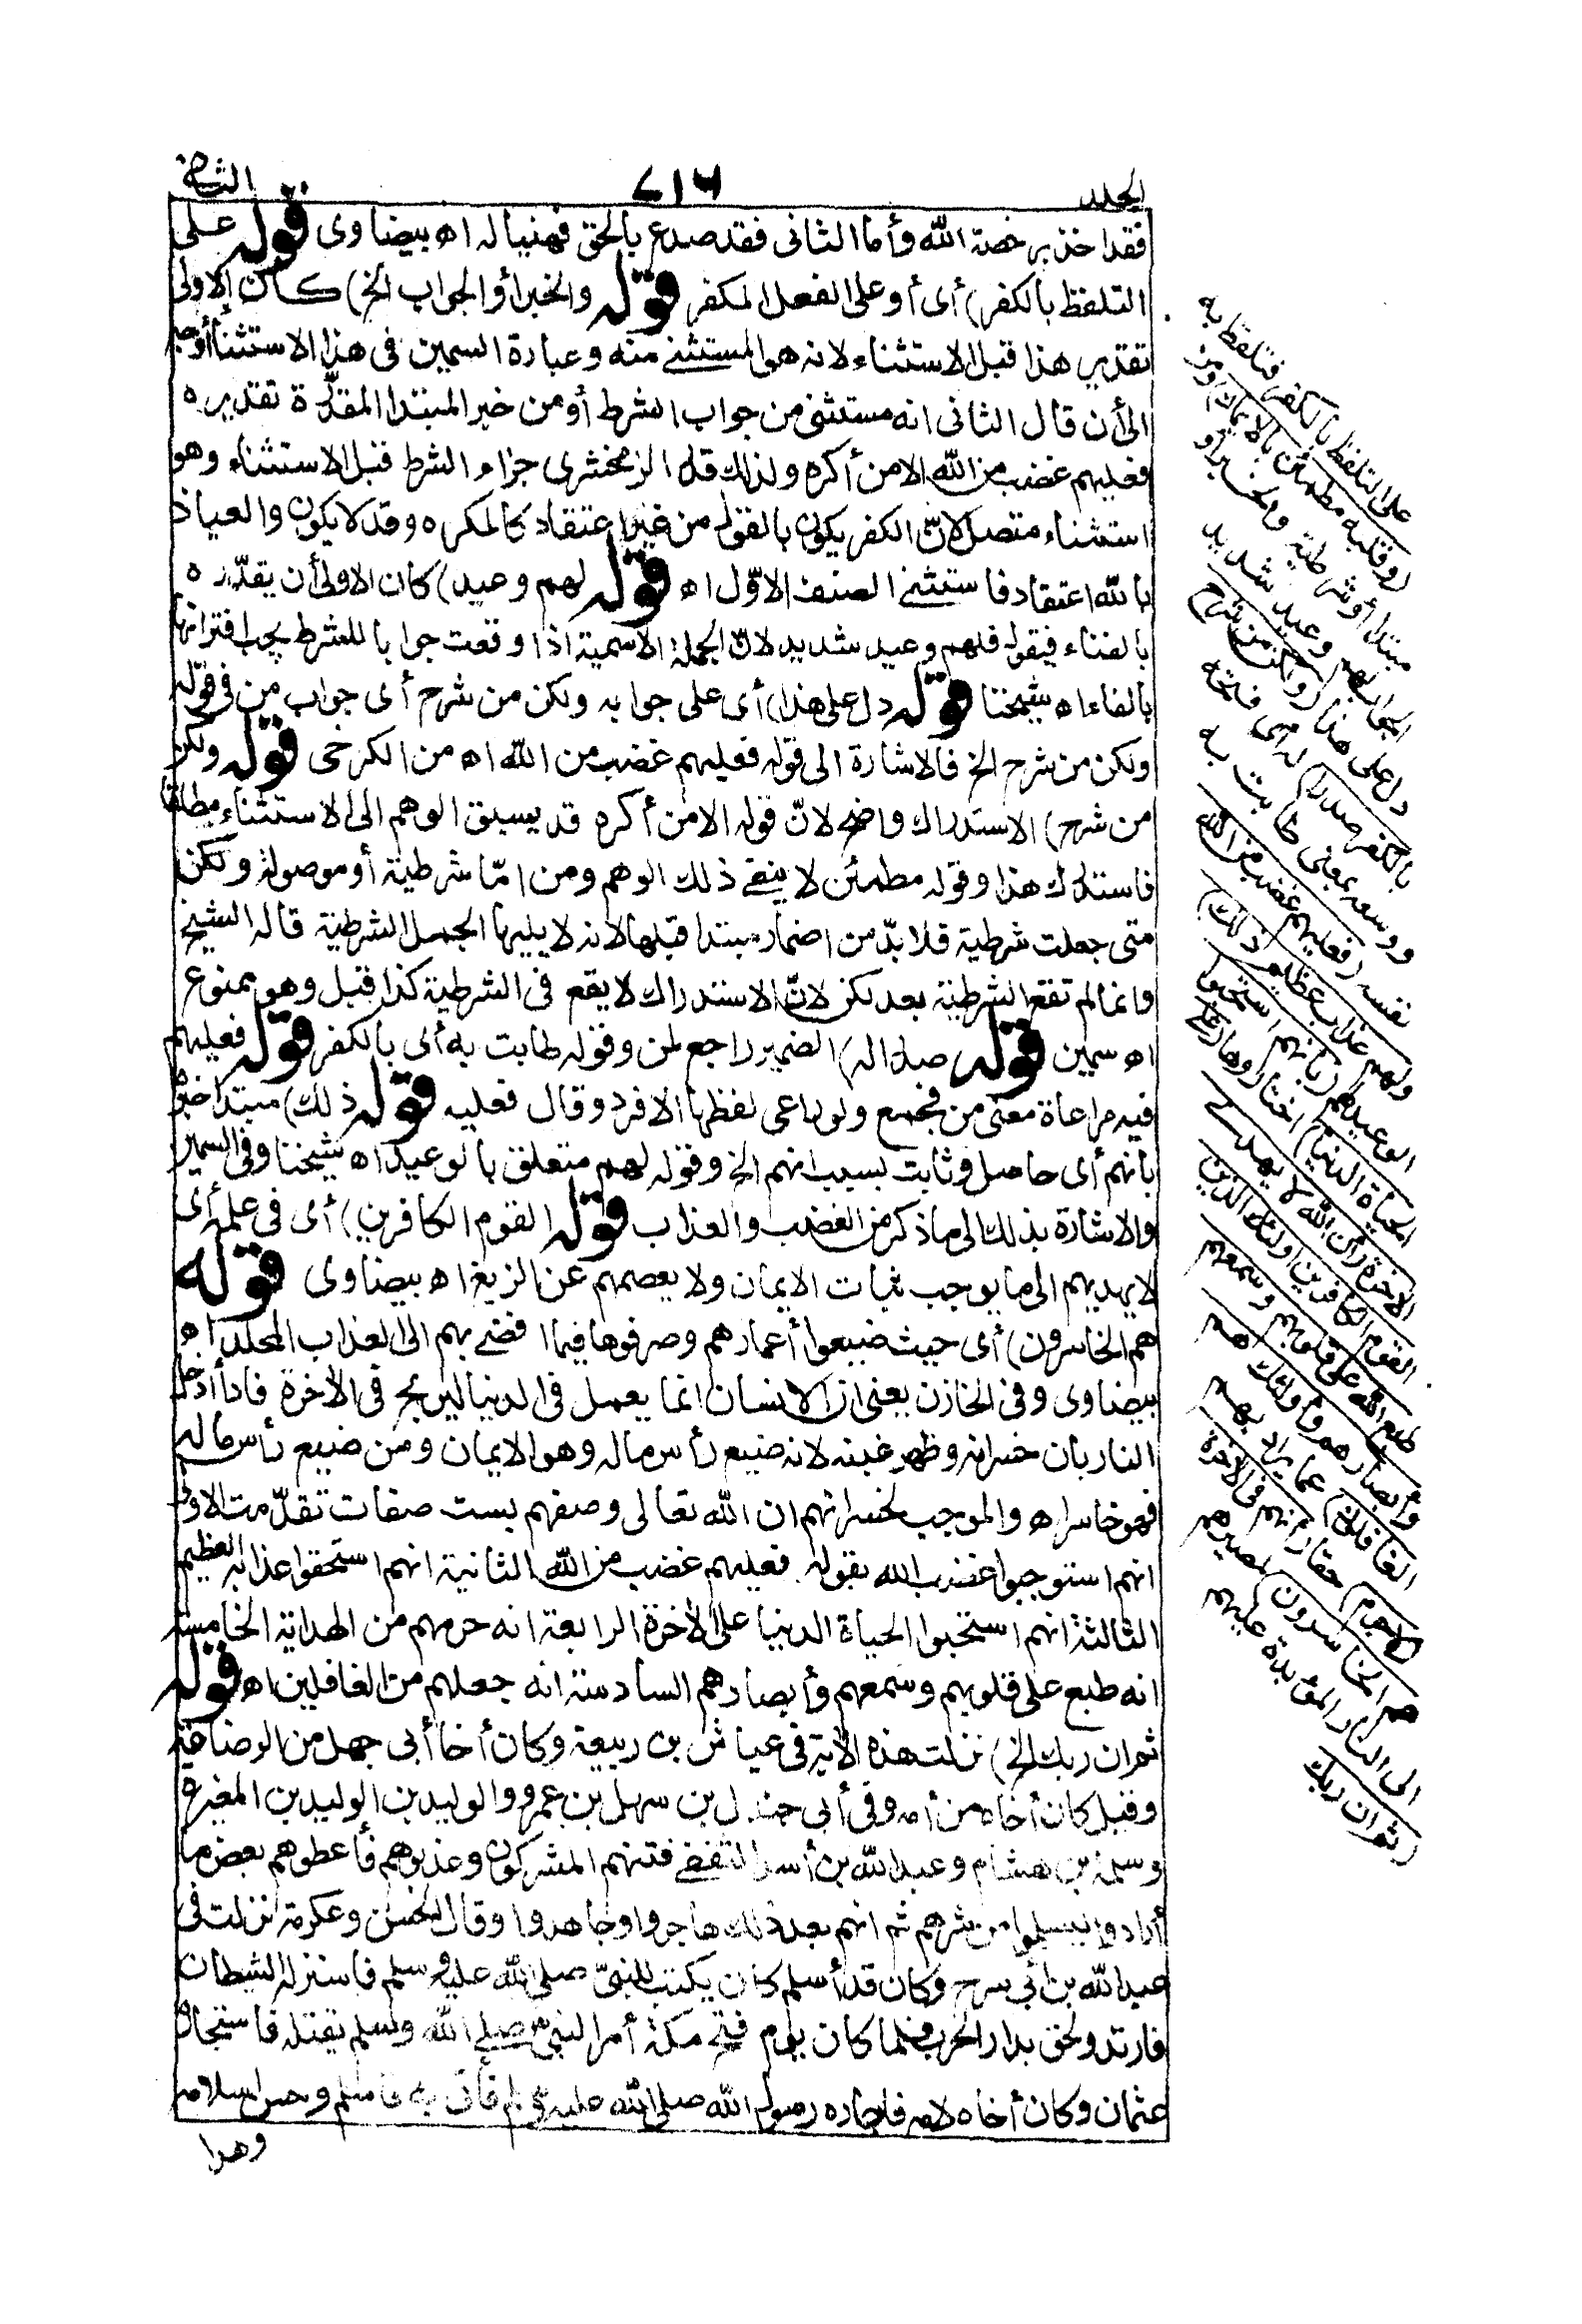 الجلد
٧١٦
الثانى
فقد اخذ برخصة الله وأما الثانى فقد صدع بالحق فهنيأ له اه بيضاوى قوله على
التلفظ بالكفر) أى أو على الفعل المكفر قوله والخبر أو الجواب الخ) كان الاولى
تقدير هذا قبل الاستثناء لانه هو المستثنى منه وعبارة السمين فى هذا الاستثناء أوجه
الى أن قال الثانى انه مستثنى من جواب الشرط أو من خبر المبتدا المقدرة تقديره
فعليهم غضب من الله الا من أكره ولذلك قدر الزمخشرى جزاء الشرط قبل الاستثناء وهو
استثناء متصل لانّ الكفر يكون بالقول من غير اعتقاد كالمكره وقد لا يكون والعياذ
بالله اعتقاد فاستثنى الصنف الاوّل اه قوله لهم وعيد) كان الاولى أن يقدّره
بالفاء فيقول فلهم وعيد شديد لانّ الجملة الاسمية اذا وقعت جوابا للشرط يجب اقترانها
بالفاء اه شيخنا قوله دل على هذا) أى على جوابه ولكن من شرح أى جواب من فى قوله
ولكن من شرح الخ فالاشارة الى قوله فعليهم غضب من الله اه من الكرخى قوله ولكن
من شرح) الاستدراك واضح لانّ قوله الا من أكره قد يسبق الوهم الى الاستثناء مطلقا
فاستدرك هذا وقوله مطمئن لا ينفى ذلك الوهم ومن امّا شرطية أو موصولة ولكن
متى جعلت شرطية فلا بدّ من اضمار مبتدا قبلها لانه لا يليها الجمل الشرطية قاله الشيخ
وانما لم تقع الشرطية بعد لكن لانّ الاستدراك لا يقع فى الشرطية كذا قيل وهو ممنوع
اه سمين قوله صدرا له) الضمير راجع لمن وقوله طابت به أى بالكفر قوله فعليهم
فيه مراعاة معنى من فجمع ولو راعى لفظها الافرد وقال فعليه قوله ذلك) مبتدا خبره
بانهم أى حاصل وثابت بسبب انهم الخ وقوله لهم متعلق بالوعيد اه شيخنا وفى السمين
والاشارة بذلك الى ما ذكر من الغضب والعذاب قوله القوم الكافرين) أى فى علمه أى
لا يهديهم الى ما يوجب ثبات الايمان ولا يعصمهم عن الزيغ اه بيضاوى قوله
هم الخاسرون) أى حيث ضيعوا أعمارهم وصرفوها فيما افضى بهم الى العذاب المخلد اه
بيضاوى وفى الخازن يعنى ان الانسان انما يعمل فى الدنيا ليربح فى الآخرة فاذا أدخل
النار بان خسرانه وظهر غبنه لانه ضيع رأس ماله وهو الايمان ومن ضيع رأس ماله
فهو خاسر اه والموجب لخسرانهم ان الله تعالى وصفهم بست صفات تقدّمت الاولى
انهم استوجبوا غضب الله بقوله فعليهم غضب من الله الثانية انهم استحقوا عذابه العظيم
الثالثة انهم استحبوا الحياة الدنيا على الآخرة الرابعة انه حرمهم من الهداية الخامسة
انه طبع على قلوبهم وسمعهم وأبصارهم السادسة انه جعلهم من الغافلين اه قوله
ثم ان ربك الخ) نزلت هذه الآية فى عياش بن ربيعة وكان أخا أبى جهل من الرضاعة
وقيل كان أخاه من أمه وفى أبى جندل بن سهل بن عمرو والوليد بن الوليد بن المغيرة
وسلمة بن هشام وعبد الله بن أسد الثقفى فتنهم المشركون وعذبوهم فأعطوهم بعض ما
أرادوا ليسلموا من شرهم ثم انهم بعد ذلك هاجروا وجاهدوا وقال الحسن وعكرمة نزلت فى
عبد الله بن أبى سرح وكان قد أسلم كان يكتب للنبىّ صلى الله عليه وسلم فاستزله الشيطان
فارتد ولحق بدار الحرب فلما كان يوم فتح مكة أمر النبى صلى الله وسلم بقتله فاستجاره
عثمان وكان أخاه لامه فاجاره رسول الله صلى الله عليه وسلم فأتى به فاسلم وحسن اسلامه
وهذا
على التلفظ بالكفر فتلفظ به
(وقلبه مطمئن بالايمان) ومن
مبتدا أو شرطية والخبر أو
الجواب لهم وعيد شديد
دل على هذا (ولكن من شرح
بالكفر صدرا) له أى فتحه
ووسعه بمعنى طابت به
نفسه (فعليهم غضب من الله
ولهم عذاب عظيم ذلك)
الوعيد لهم (بانهم استحبوا
الحياة الدنيا) اختاروها (على
الآخرة وان الله لا يهدى
القوم الكافرين اولئك الذين
طبع الله على قلوبهم وسمعهم
وأبصارهم وأولئك هم
الغافلون) عما يراد بهم
(لا جرم) حقا (أنهم فى الآخرة
هم الخاسرون) لمصيرهم
الى النار المؤبدة عليهم
(ثم ان ربك